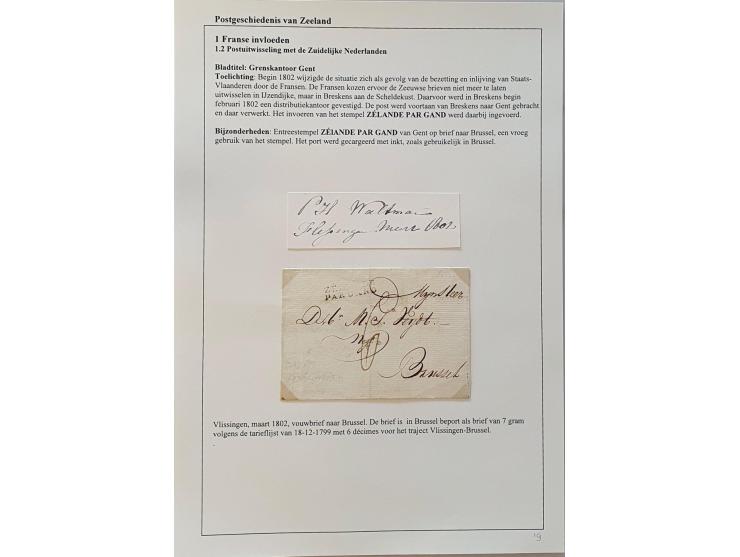 Postgeschiedenis van Zeeland
1 Franse invloeden
1.2 Postuitwisseling met de Zuidelijke Nederlanden
Bladtitel: Grenskantoor Gent
Toelichting: Begin 1802 wijzigde de situatie zich als gevolg van de bezetting en inlijving van Staats-
Vlaanderen door de Fransen. De Fransen kozen ervoor de Zeeuwse brieven niet meer te laten
uitwisselen in IJzendijke, maar in Breskens aan de Scheldekust. Daarvoor werd in Breskens begin
februari 1802 een distributiekantoor gevestigd. De post werd voortaan van Breskens naar Gent gebracht
en daar verwerkt. Het invoeren van het stempel ZÉLANDE PAR GAND werd daarbij ingevoerd.
Bijzonderheden: Entreestempel ZÉlANDE PAR GAND van Gent op brief naar Brussel, een vroeg
gebruik van het stempel. Het port werd gecargeerd met inkt, zoals gebruikelijk in Brussel.
PH Waltman
PAR GAND
Mynheer
Brussel
Vlissingen, maart 1802, vouwbrief naar Brussel. De brief is in Brussel beport als brief van 7 gram
volgens de tarieflijst van 18-12-1799 met 6 décimes voor het traject Vlissingen-Brussel.
.